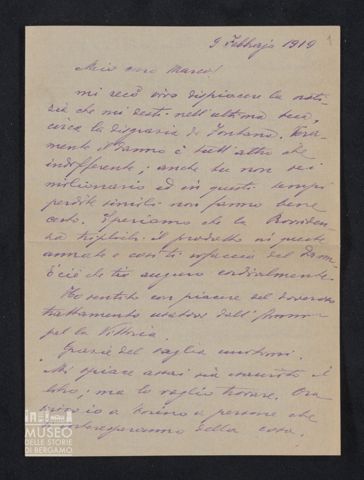 9 Febbrajo 1919
1
Mio caro Marco!
mi recò vivo dispiacere la noti-
zia che mi desti nell'ultima tua,
circa la disgrazia di Fontana. Vera-
mente il danno è tutt'altro che
indifferente; anche tu non sei
milionario ed in questi tempi
perdite simili non fanno bene
certo. Speriamo che la Provviden-
za triplichi il prodotto in queste
annate e così ti rifaccia del danno
È ciò che tio auguro cordialmente.
Ho sentito con piacere del doveroso
trattamento dell'
pel la Vittoria.
Grazie del vaglia unitomi.
Mi spiace assai sia esaurito il
libro; ma lo voglio trovare. Ora
scrivo io a Torino a persone che
della cosa.
MUSEO
DELLE STORIE
DI BERGAMO